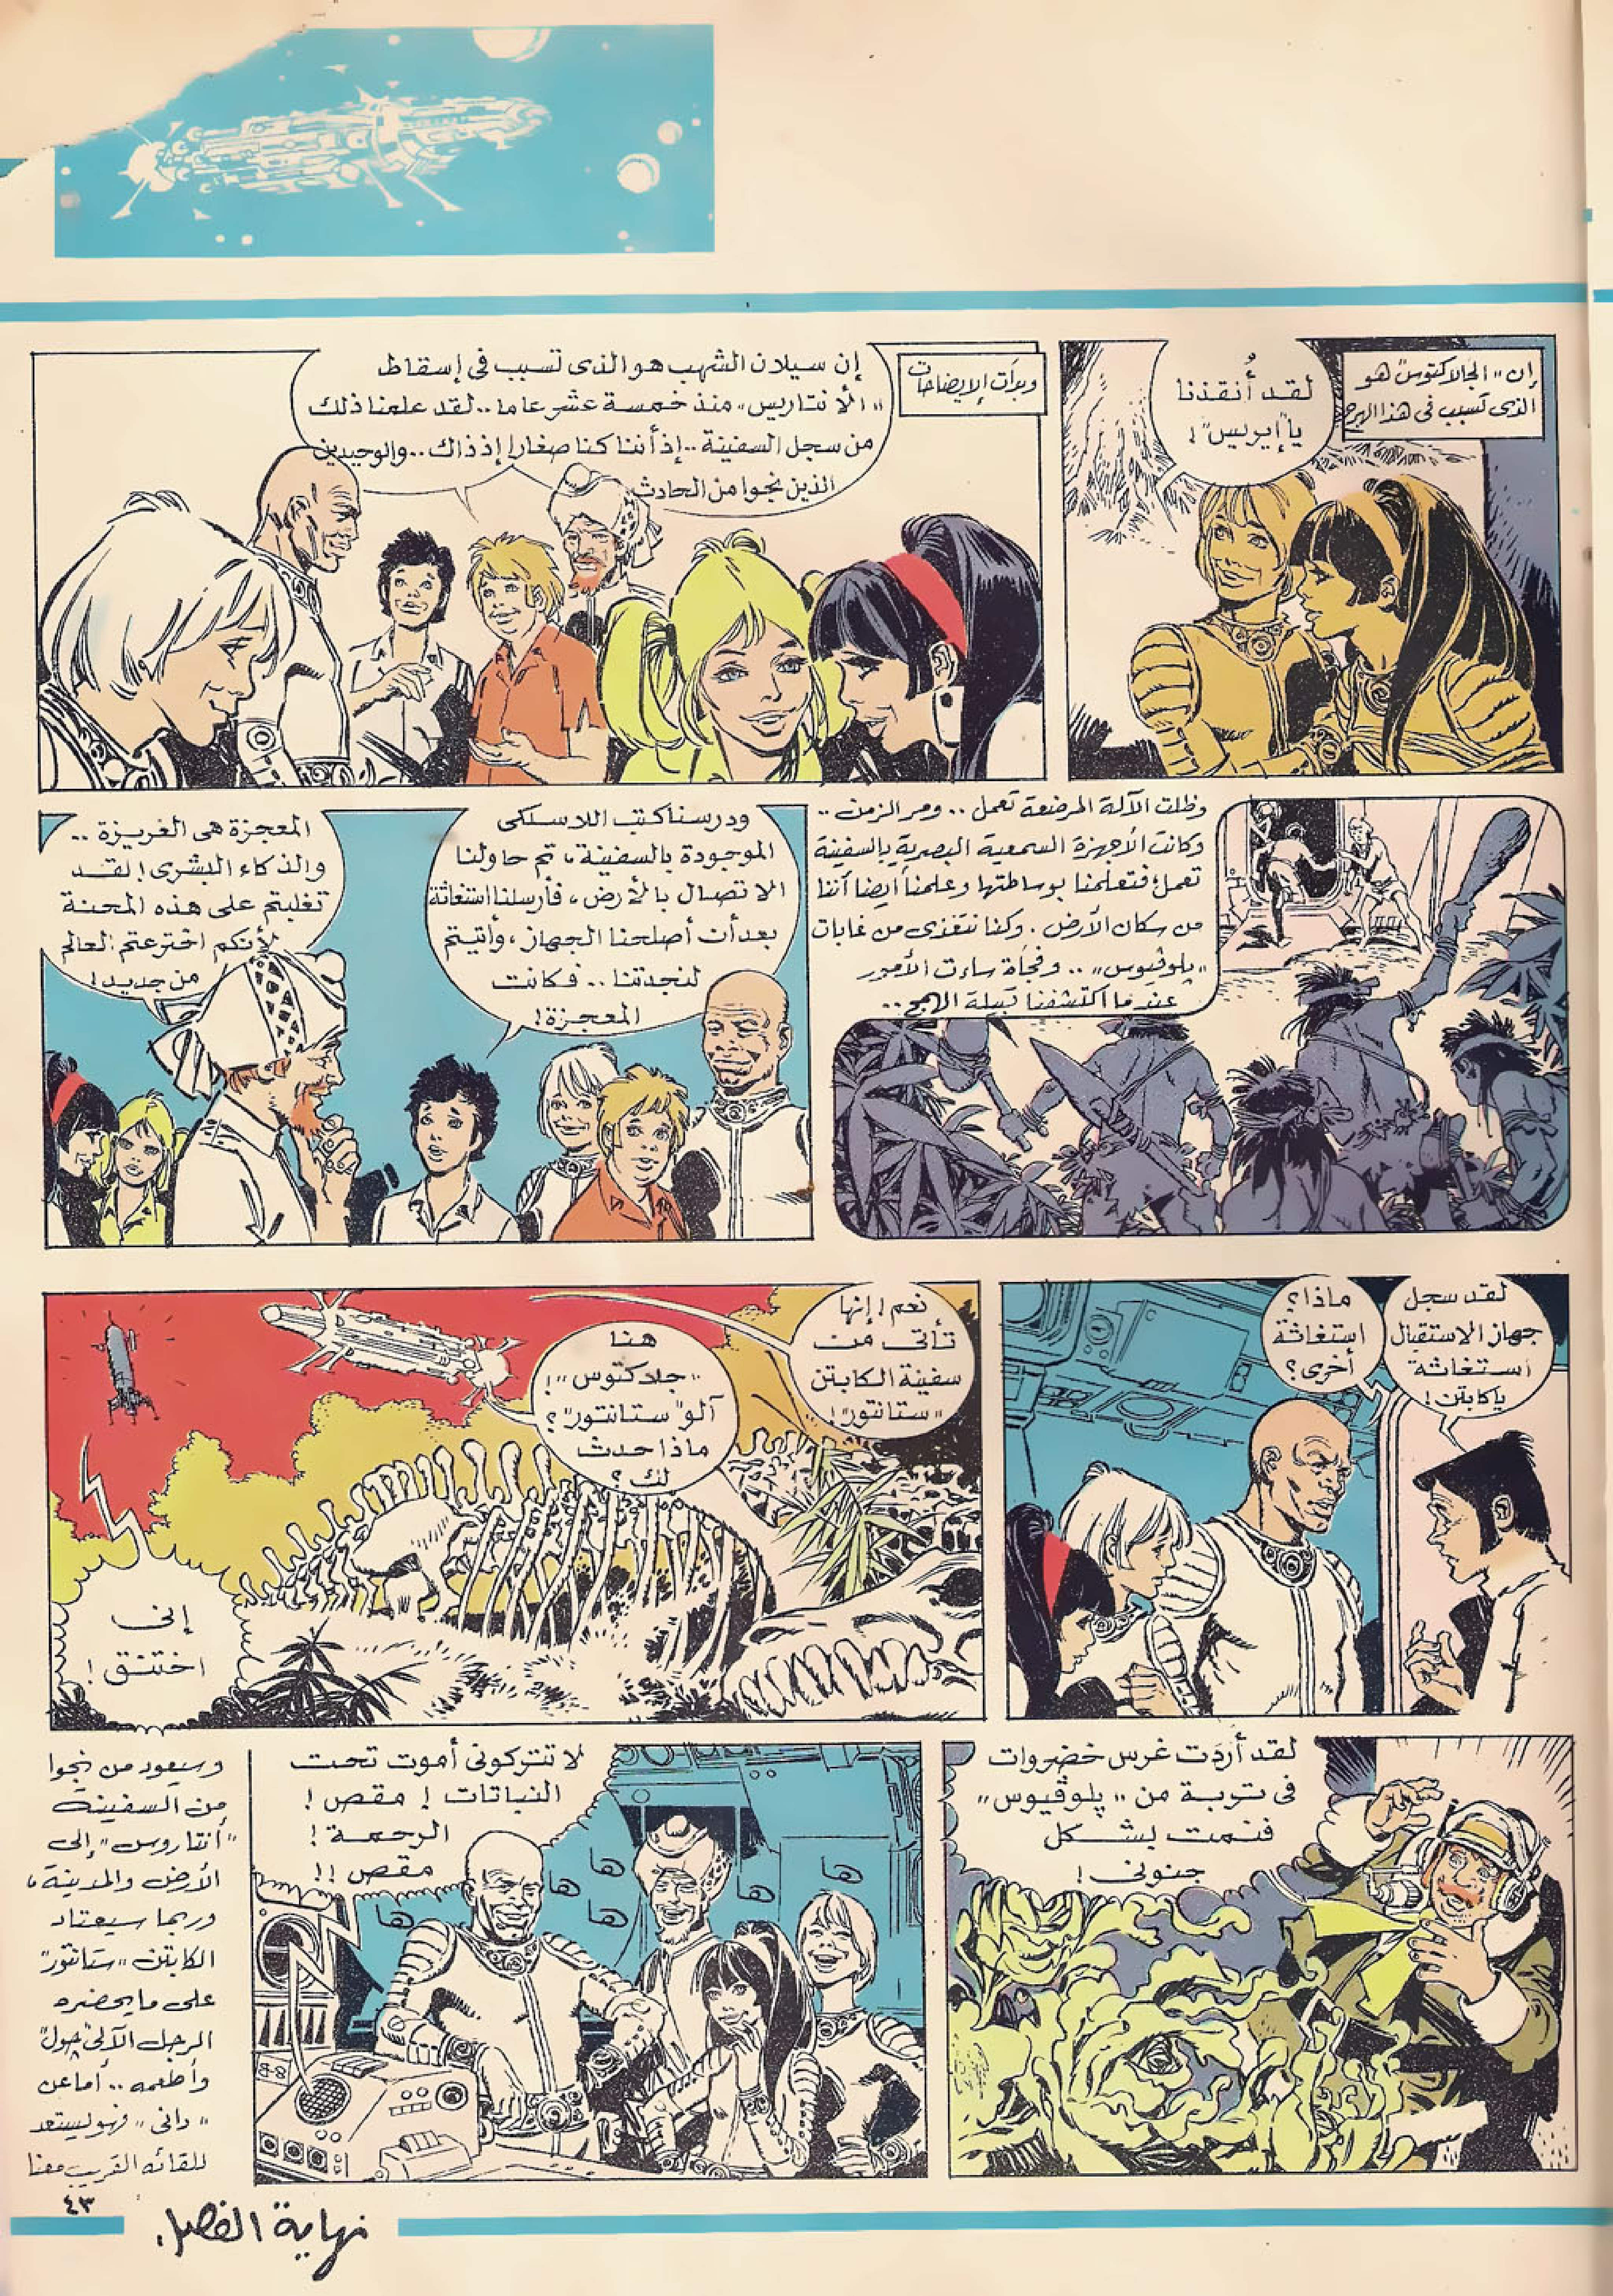 إن "الجالاكتوس" هو
الذى تسبب فى هذا الهرج
لقد أُنقذنا
يا "إيريس"!
وبدأت الإيضاحات
إن سيلان الشهب هو الذى تسبب فى إسقاط
"الأنتاريس" منذ خمسة عشر عاما.. لقد علمنا ذلك
من سجل السفينة.. إذ أننا كنا صغارا إذ ذاك.. والوحيدين
الذين نجوا من الحادث
وظلت الآلة المرضعة تعمل.. ومر الزمن..
وكانت الأجهزة السمعية البصرية بالسفينة
تعمل؛ فتعلمنا بوساطتها وعلمنا أيضا أننا
من سكان الأرض. وكنا نتغذى من غابات
"پلوڤيوس".. وفجأة ساءت الأمور
عندما اكتشفنا قبيلة الهمج..
ودرسنا كتب اللاسلكى
الموجودة بالسفينة، ثم حاولنا
الاتصال بالأرض، فأرسلنا استغاثة
بعد أن أصلحنا الجهاز، وأتيتم
لنجدتنا.. فكانت
المعجزة!
المعجزة هى الغريزة..
والذكاء البشرى! لقد
تغلبتم على هذه المحنة
لأنكم اخترعتم العالم
من جديد!
لقد سجل
جهاز الاستقبال
استغاثة
يا كابتن!
ماذا؟
استغاثة
أخرى؟
نعم! إنها
تأتى من
سفينة الكابتن
"ستانتور"!
هنا
"جلاكتوس"!
آلو "ستانتور"؟
ماذا حدث
لك؟
إنى
اختنق!
لقد أردت غرس خضروات
فى تربة من "پلوڤيوس"
فنمت بشكل
جنونى!
لا تتركونى أموت تحت
النباتات! مقص!
الرحمة!
مقص!!
ها
ها
ها
ها
ها
ها
8-8
وسيعود من نجوا
من السفينة
"أنتاروس" إلى
الأرض والمدينة،
وربما سيعتاد
الكابتن "ستانتور"
على ما يحضره
الرجل الآلى "جول"
وأطعمه.. أما عن
"دانى" فهو ليستعد
للقائه القريب معنا
٤٣
نهاية الفصل.